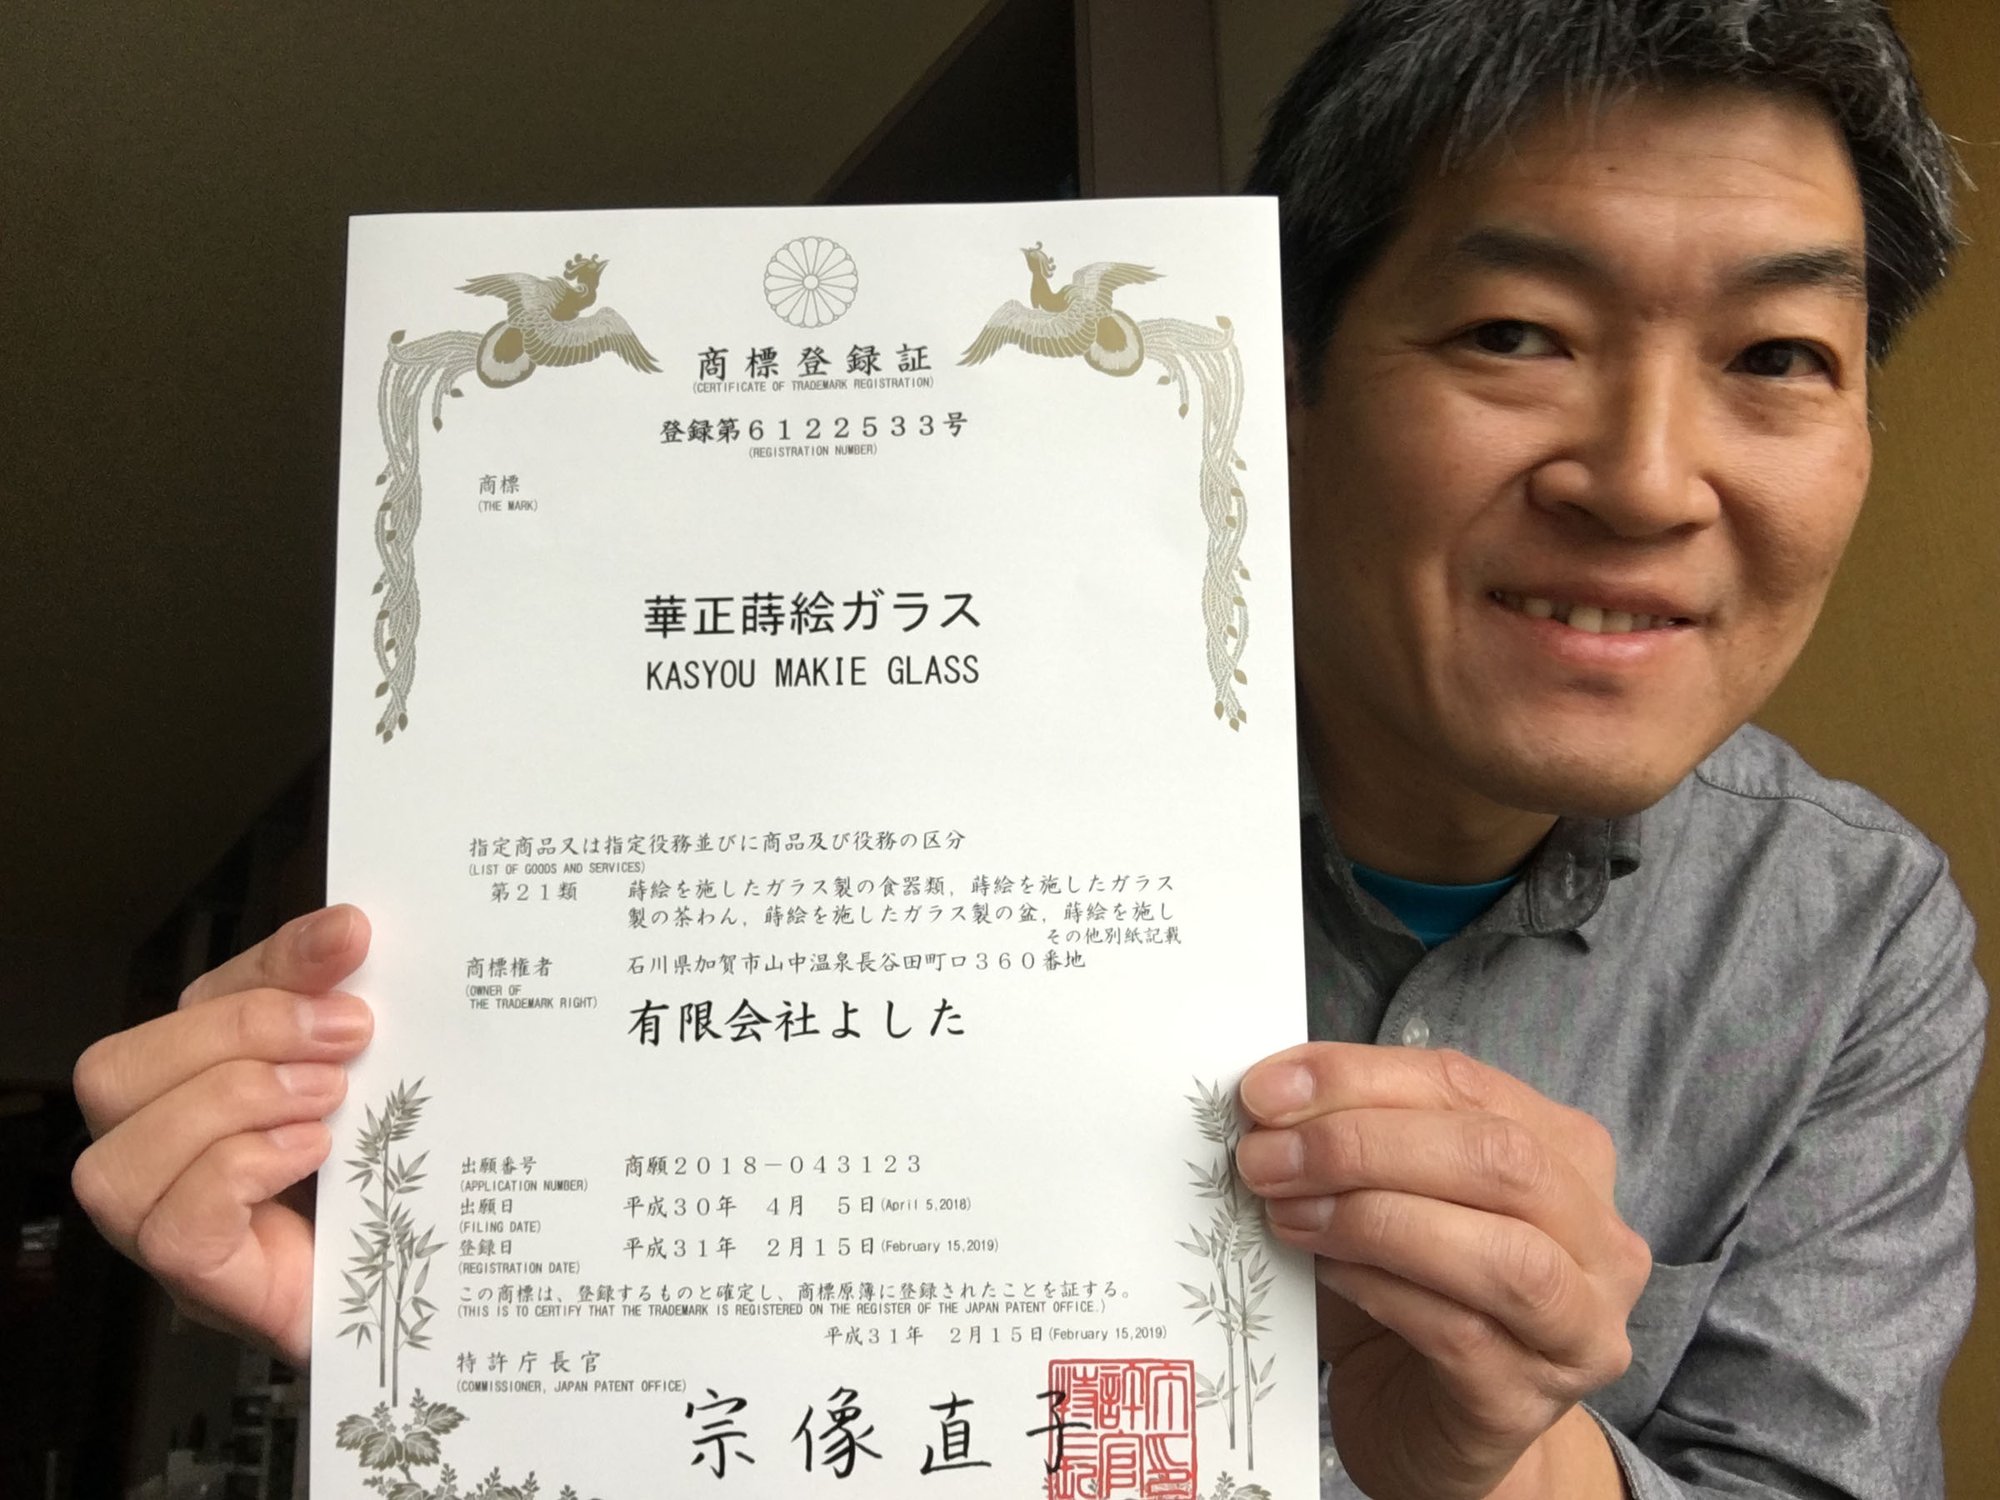 商標登録証
(CERTIFICATE OF TRADEMARK REGISTRATION)
登録第6122533号
(REGISTRATION NUMBER)
商標
(THE MARK)
華正蒔絵ガラス
KASYOU MAKIE GLASS
指定商品又は指定役務並びに商品及び役務の区分
(LIST OF GOODS AND SERVICES)
第21類 蒔絵を施したガラス製の食器類，蒔絵を施したガラス
製の茶わん，蒔絵を施したガラス製の盆，蒔絵を施し
その他別紙記載
商標権者 石川県加賀市山中温泉長谷田町ロ360番地
(OWNER OF
THE TRADEMARK RIGHT)
有限会社よした
出願番号 商願2018－043123
(APPLICATION NUMBER)
出願日 平成30年 4月 5日(April 5,2018)
(FILING DATE)
登録日 平成31年 2月15日(February 15,2019)
(REGISTRATION DATE)
この商標は、登録するものと確定し、商標原簿に登録されたことを証する。
(THIS IS TO CERTIFY THAT THE TRADEMARK IS REGISTERED ON THE REGISTER OF THE JAPAN PATENT OFFICE.)
平成31年 2月15日(February 15,2019)
特許庁長官
(COMMISSIONER, JAPAN PATENT OFFICE)
宗像直子
特許庁長官印